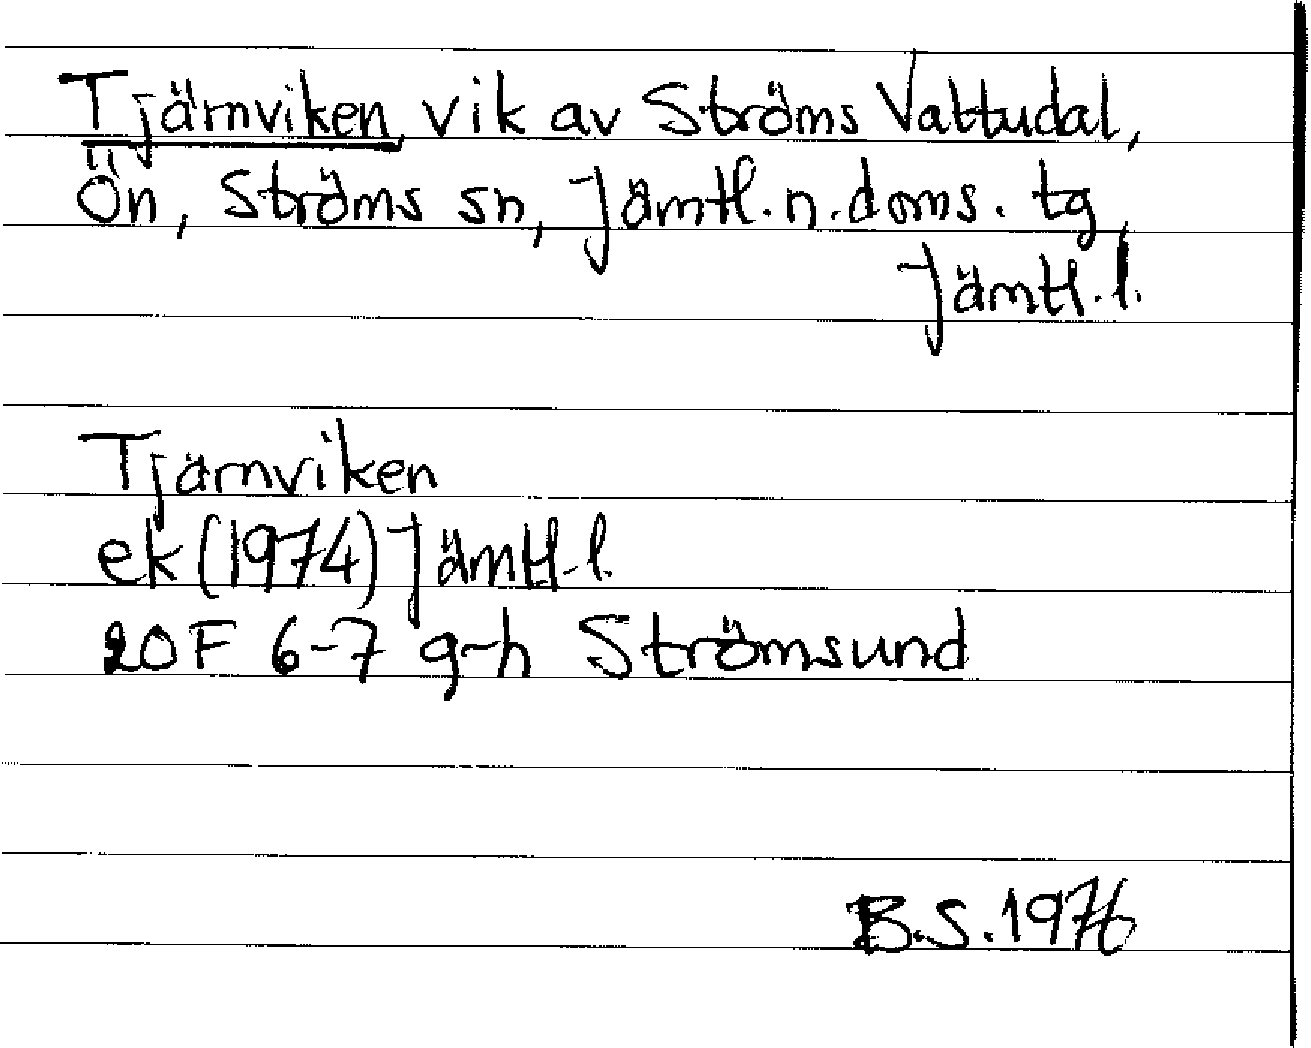 Tjärnviken, vik av Ströms Vattudal,
Ön, Ströms sn, Jämtl. n. doms. tg,
Jämtl. l.
Tjärnviken
ek (1974) Jämtl. l.
20F 6-7 g-h Strömsund
B.S. 1976